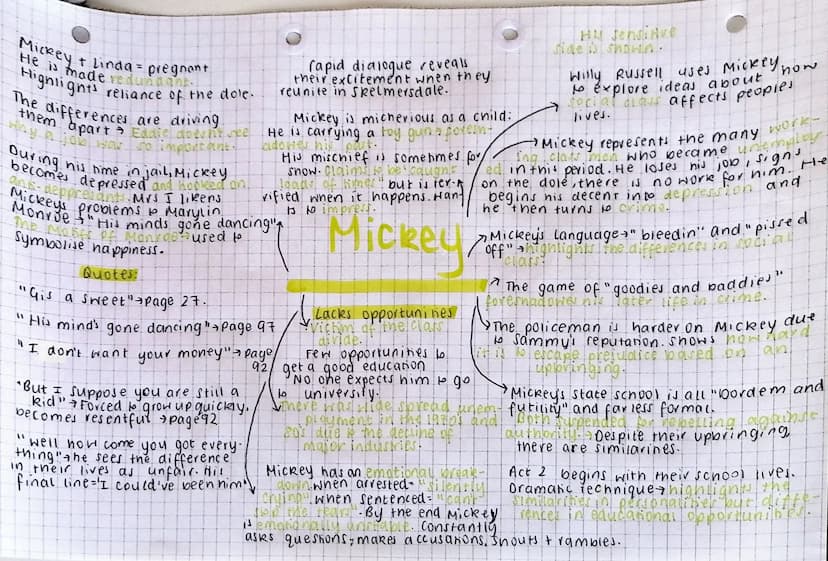 Mickey + Linda = pregnant
He is made redundant.
Highlights reliance of the dole.
The differences are driving
them apart → Eddie doesnt see
why a job was so important.
During his time in jail, Mickey
becomes depressed and hooked on
anti-depressants. Mrs J likens
Mickeys problems to Marylin
Monroe → "His minds gone dancing"
The Motif of Monroe → used to
symbolise happiness.
Quotes:
"Gis a sweet" → page 27.
"His mind's gone dancing" → page 97
"I don't want your money" → page
92
"But I suppose you are still a
kid" → Forced to grow up quickly,
becomes resentful → page 92
"Well how come you got every-
thing" → he sees the difference
in their lives as unfair. His
final line = "I could've been him"
rapid dialogue reveals
their excitement when they
reunite in Skelmersdale.
Mickey is micherious as a child:
He is carrying a toy gun → foresh-
adows his part.
His mischief is sometimes for
show. Claims to be "caught
loads of times" but is terr-
ified when it happens. Want
is to impress.
Mickey
Lacks opportunines
Victim of the class
divide.
Few opportunines to
get a good education
No one expects him to go
to university.
There was wide spread unem-
ployment in the 1970s and
80s due to the decline of
major industries.
Mickey has an emotional break-
down when arrested = "silently
crying". When sentenced = "can't
stop the tears". By the end Mickey
is emotionally unstable. Constantly
asks questions, makes accusations, shouts + rambles.
His sensitive
side is shown.
Willy Russell uses Mickey
to explore ideas about how
social class affects peoples
lives.
Mickey represents the many work-
ing class men who became unemploy-
ed in this period. He loses his job, signs
on the dole, there is no work for him. He
begins his decent into depression and
he then turns to crime.
Mickey's language → "bleedin" and "pissed
off" → highlights the differences in social
class.
The game of "goodies and baddies"
foreshadows his later life in crime.
The policeman is harder on Mickey due
to Sammy's reputation. Shows how hard
it is to escape prejudice based on an
upbringing.
Mickey's state school is all "boredem and
futility" and far less formal.
Both suspended for rebelling against
authority → Despite their upbringing
there are similarines.
Act 2 begins with their school lives.
Dramatic technique → highlights the
similarities in personalities but diffe-
rences in educational opportunines.